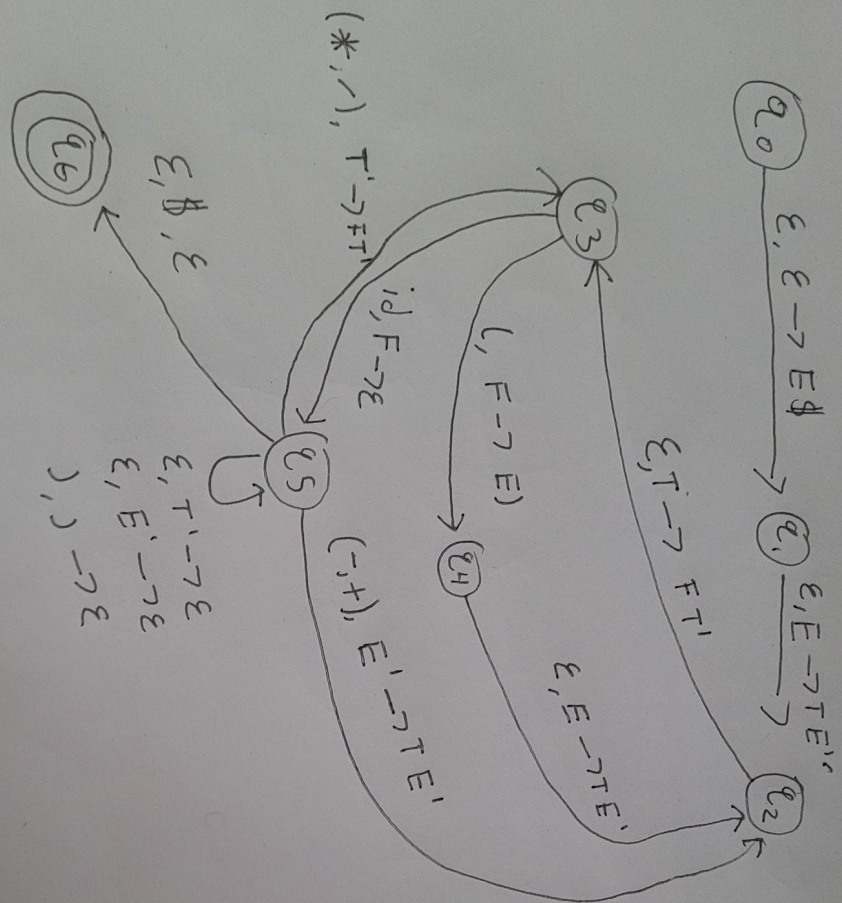 q0
ε, ε -> E$
q1
ε, E -> TE'
q2
ε, T -> FT'
q3
(, F -> E)
q4
ε, E -> TE'
id, F -> ε
q5
(-,+), E' -> TE'
ε, T' -> ε
ε, E' -> ε
), ) -> ε
ε, $, ε
q6